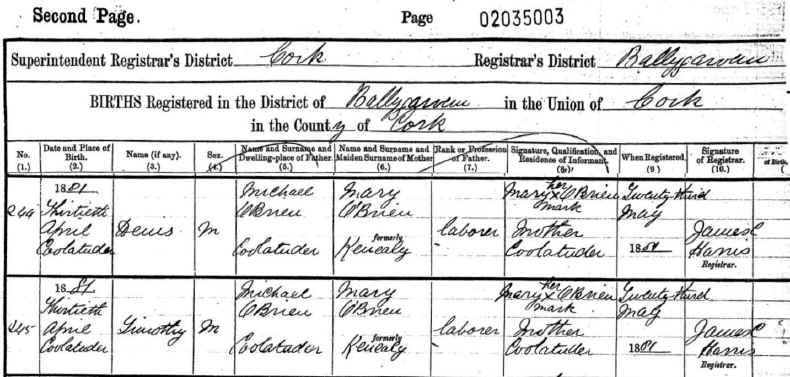 Second Page. Page 02035003
Superintendent Registrar's District Cork Registrar's District Ballygarvan
BIRTHS Registered in the District of Ballygarvan in the Union of Cork
in the County of Cork
No. (1.) Date and Place of Birth. (2.) Name (if any). (3.) Sex. (4.) Name and Surname and Dwelling-place of Father. (5.) Name and Surname and Maiden Surname of Mother (6.) Rank or Profession of Father. (7.) Signature, Qualification, and Residence of Informant. When Registered. (9.) Signature of Registrar. (10.) of Birth,
1881 Michael Mary Mary her x O'Brien Twenty third
244 Thirtieth O'Brien O'Brien mark May
April Denis M laborer Mother James C
Coolatuder Coolatuder formerly Kenealy Coolatuder 1881 Harris
Registrar.
1881 Michael Mary Mary her x O'Brien Twenty third
Thirtieth O'Brien O'Brien mark May
245 April Timothy M laborer Mother James C
Coolatuder Coolatuder formerly Kenealy Coolatuder 1881 Harris
Registrar.